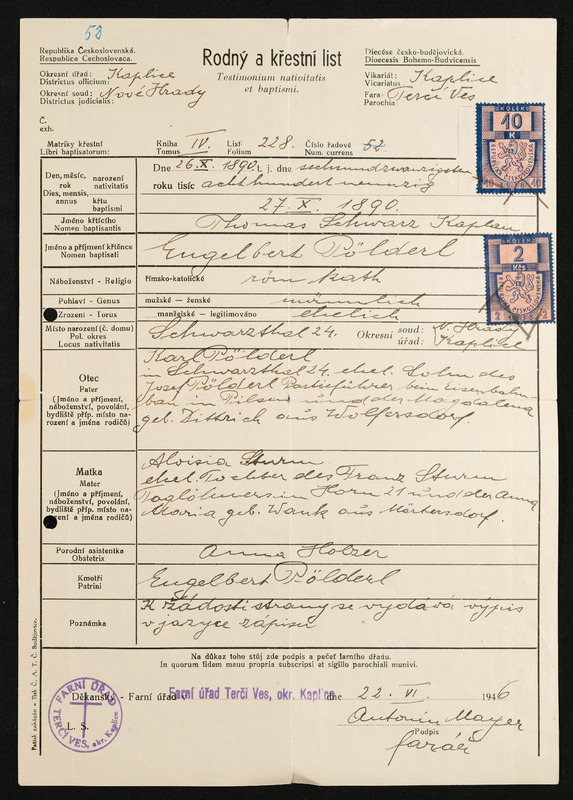 53
Republika Československá.
Respublica Cechoslovaca.
Okresní úřad: Kaplice
Districtus officium:
Okresní soud: Nové Hrady
Districtus judicialis:
Rodný a křestní list
Testimonium nativitatis
et baptismi.
Diecése česko-budějovická.
Dioecesis Bohemo-Budvicensis.
Vikariát: Kaplice
Vicariatus
Fara Terčí Ves
Parochia:
Č.
exh.
Matriky křestní
Libri baptisatorum:
Kniha IV. List 228. Číslo řadové 52
Tomus Folium Num. currens
KOLEK
10
K
REPUBLIKA ČESKOSLOVENSKÁ
Den, měsíc, rok
Dies, mensis, annus
narození
nativitatis
křtu
baptismi
Dne 26.X. 1890. t. j. dne sechsundzwanzigsten
roku tisíc achthundertneunzig
27. X. 1890.
Jméno křtícího
Nomen baptisantis
Thomas Schwarz Kaplan
Jméno a příjmení křtěnce
Nomen baptisati
Engelbert Pölderl
KOLEK
2
Kčs
Náboženství - Religio
římsko-katolické röm kath
Pohlaví - Genus
mužské - ženské männlich
Zrození - Torus
manželské - legitimováno ehelich
Místo narození (č. domu)
Pol. okres
Locus nativitatis
Schwarzthal 24. Okresní soud: N. Hrady
úřad: Kaplice
Otec
Pater
(Jméno a příjmení,
náboženství, povolání,
bydliště příp. místo na-
rození a jména rodičů)
Karl Pölderl
in Schwarzthal 24, ehel. Sohn des
Josef Pölderl Partieführer beim Eisenbahn-
bau in Pilsen und der Magdalena
geb. Dittrich aus Wolfersdorf.
Matka
Mater
(Jméno a příjmení,
náboženství, povolání,
bydliště příp. místo na-
rození a jména rodičů)
Aloisia Sturm
ehel. Tochter des Franz Sturm
Taglöhners in Horn 21 und der Anna
Maria geb. Wank aus
Porodní asistentka
Obstetrix
Anna Holzer
Kmotři
Patrini
Engelbert Pölderl
Poznámka
K žádosti strany se vydává výpis
v jazyce zápisu
Na důkaz toho stůj zde podpis a pečeť farního úřadu.
In quorum fidem manu propria subscripsi et sigillo parochiali munivi.
Děkanský - Farní úřad v Farní úřad Terčí Ves, okr. Kaplice dne 22. VI. 1946
FARNÍ ÚŘAD
TERČÍ VES, okr. Kaplice
L. S.
Antonín Mayer
Podpis
farář